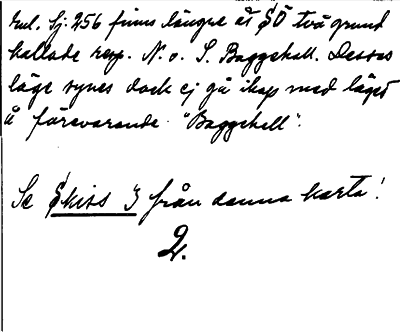 Enl. Sj. 256 finns längre åt SÖ två grund
kallade resp. N. o. S. Baggehall. Dessas
läge synes dock ej gå ihop med läget
å förevarande "Baggehall".
Se skiss 3 från denna karta!
2.